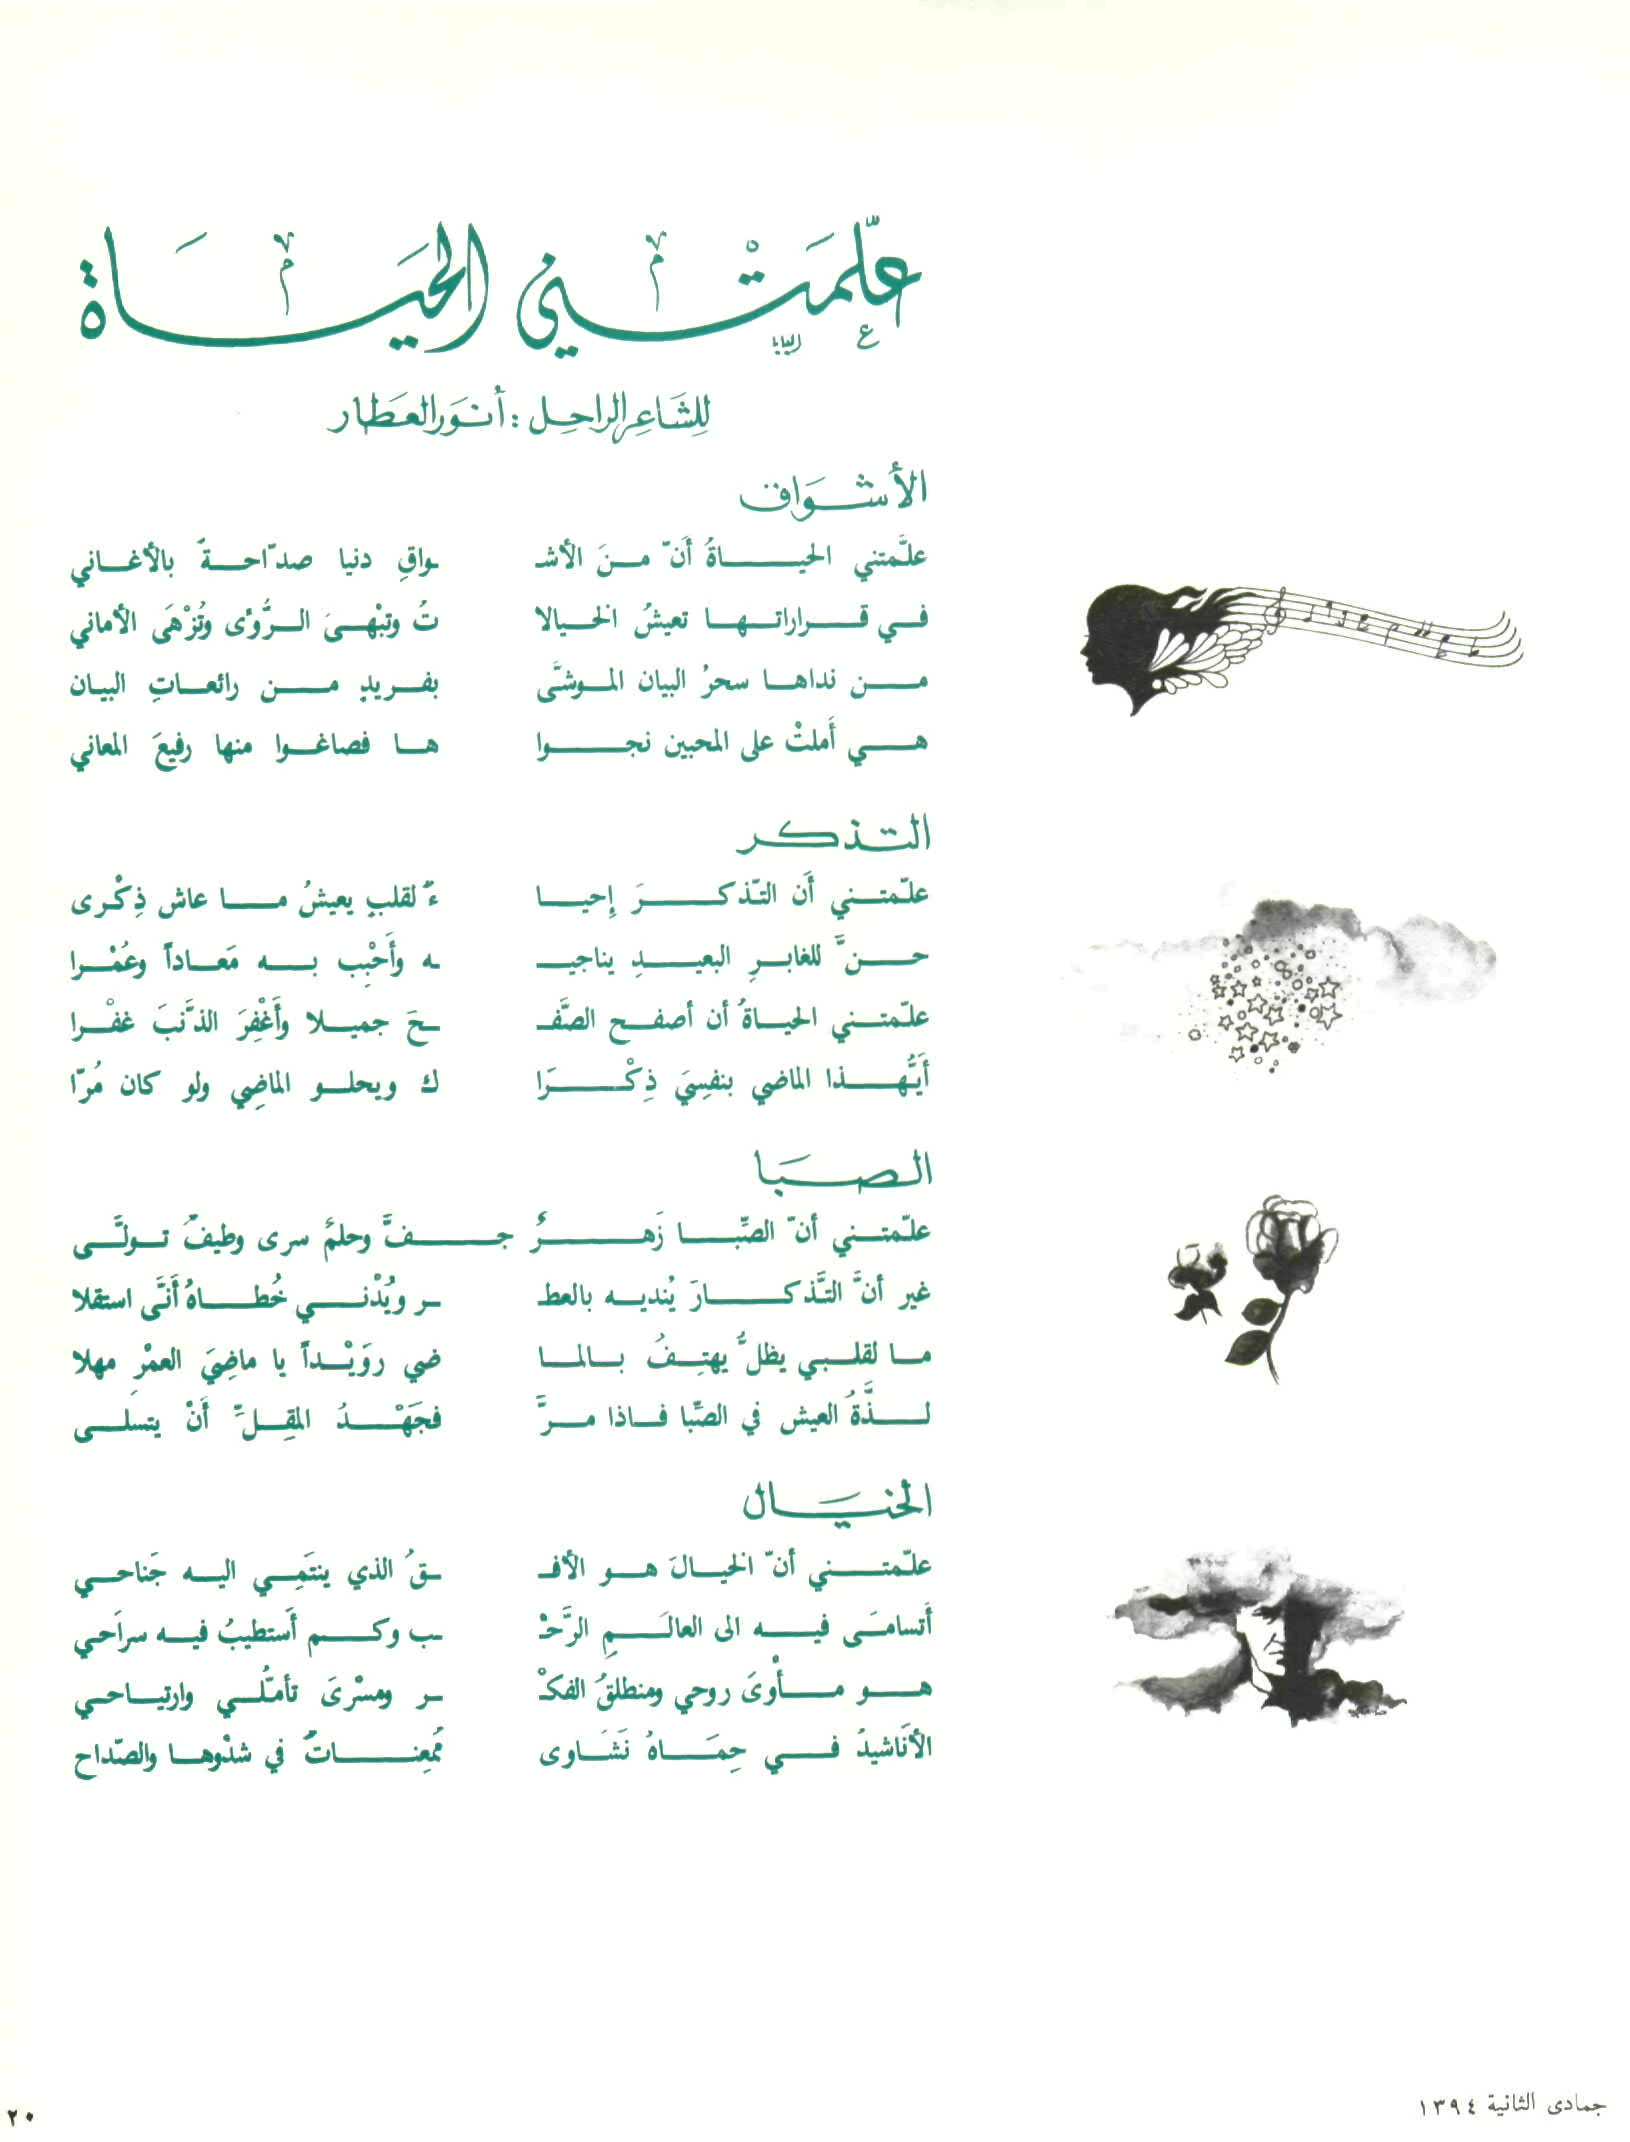 علّمَتْني الحيَاة
للشَاعِر الراحِل : أنوَر العَطار
الأشوَاق
علَّمتني الحياةُ أَنّ منَ الأشـ ـواقِ دنيا صدّاحةً بالأغاني
في قراراتها تعيشُ الخيالا تُ وتبْهى الرُّؤى وتُزْهَى الأماني
من نداها سحرُ البيان الموشَّى بفريدٍ من رائعاتِ البيان
هي أَملتْ على المحبين نجوا ها فصاغوا منها رفيعَ المعاني
التذكر
علّمتني أَن التّذكرَ إِحيا ءٌ لقلبٍ يعيشُ ما عاش ذِكْرى
حنَّ للغابرِ البعيدِ يناجيـ ـه وأَحْبِب به مَعاداً وعُمْرا
علّمتني الحياةُ أن أصفح الصَّفـ ـحَ جميلا وأَغْفِرَ الذَّنبَ غفْرا
أَيُّهذا الماضي بنفسِيَ ذِكْرَا ك ويحلو الماضِي ولو كان مُرّا
الصبَا
علّمتني أنّ الصِّبا زَهرٌ جفَّ وحلمٌ سرى وطيفٌ تولَّى
غير أنَّ التَّذكارَ يُنديه بالعطـ ـر ويُدْني خُطاهُ أَنَّى استقلا
ما لقلبي يظلُّ يهتِفُ بالما ضي روَيْداً يا ماضِيَ العمْرِ مهلا
لذَّةُ العيش في الصِّبا فاذا مرَّ فجَهْدُ المقِلِّ أَنْ يتسلى
الخيَال
علّمتني أنّ الخيالَ هو الأفـ ـقُ الذي ينتَمِي اليه جَناحي
أَتسامَى فيه الى العالَمِ الرَّحْـ ـب وكم أَستطيبُ فيه سراَحي
هو مأْوىَ روحي ومنطلقُ الفكْـ ـر ومسْرىَ تأمّلُي وارتياحي
الأنَاشيدُ في حِمَاهُ نَشَاوى مُمعِناتٌ في شدْوها والصّداح
جمادى الثانية ١٣٩٤
٢٠